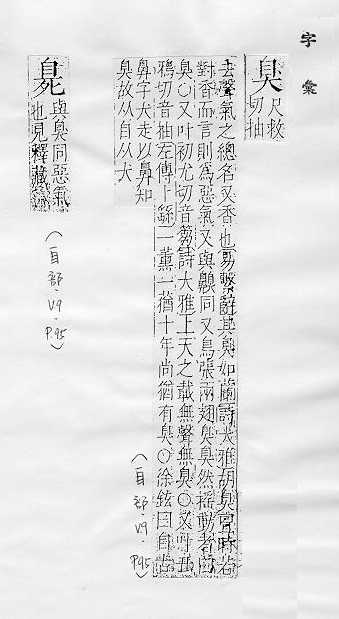 字彙
臭
尺救
切抽
去聲氣之總名又香也易繫辭其臭如蘭詩大雅胡臭亶時若
對香而言則爲惡氣又與齅同又鳥張兩翅臭臭然搖動者曰
臭○又叶初尤切音芻詩大雅上天之載無聲無臭○又叶丑
鳩切音抽左傳卜繇一薰一蕕十年尚猶有臭○徐鉉曰自古
鼻字犬走以鼻知
臭故从自从犬
(自部.V9.P95)
臰
與臭同惡氣
也見釋藏
(自部.V9.P.95)